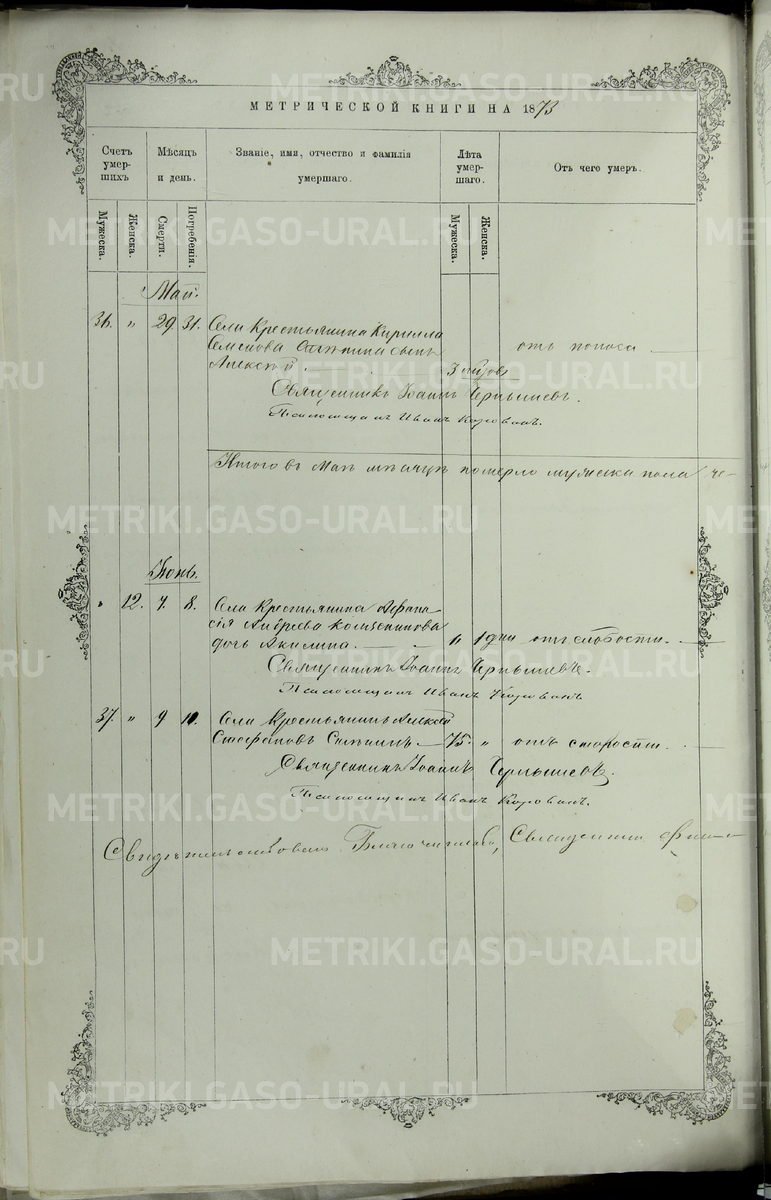 МЕТРИЧЕСКОЙ КНИГИ НА 1873
Счетъ умер-шихъ
Мѣсяцъ и день.
Званіе, имя, отчество и фамилія умершаго.
Лѣта умер-шаго.
Отъ чего умеръ.
Мужеска.
Женска.
Смерти.
Погребенія.
Мужеска.
Женска.
Май.
36. „ 29 31. Села Крестьянина Кирилла
Семенова сынъ отъ поноса
Алексѣй.
Священникъ Іоаннъ Чернышевъ.
Псаломщикъ Иванъ
Итого въ Маѣ мѣсяцѣ померло мужеска пола че-
Іюнь.
„ 12. 7. 8. Села Крестьянина Афана-
сія Андреева
дочь Акилина. „ 1 дни отъ слабости.
Священникъ Іоаннъ Чернышевъ.
Псаломщикъ Иванъ
37. „ 9 10. Села Крестьянинъ Алексѣй
Стефановъ 75. „ отъ старости.
Священникъ Іоаннъ Чернышевъ.
Псаломщикъ Иванъ
Свидѣтельствовалъ Благочинный, Священникъ
METRIKI.GASO-URAL.RU